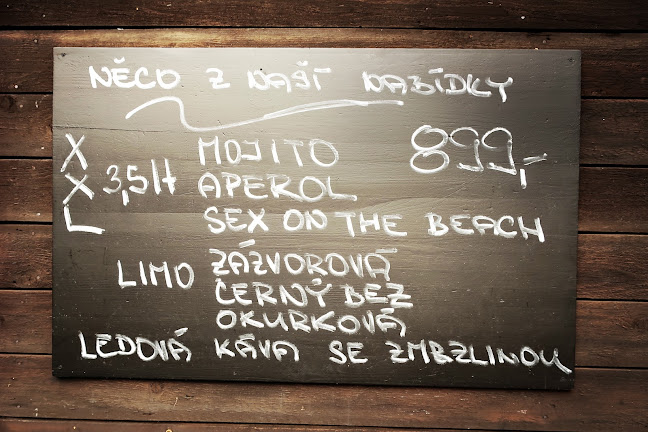 NĚCO Z NAŠÍ NABÍDKY
X MOJITO 899,-
X 3,5lt APEROL
L SEX ON THE BEACH
LIMO ZÁZVOROVÁ
ČERNÝ BEZ
OKURKOVÁ
LEDOVÁ KÁVA SE ZMRZLINOU